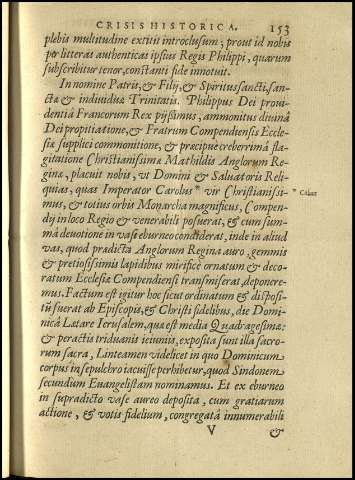 CRISIS HISTORICA. 153
plebis multitudine extitit introclusum; prout id nobis
per litteras authenticas ipsius Regis Philippi, quarum
subscribitur tenor, constanti fide innotuit.
In nomine Patris, & Filij, & Spiritus sancti, san-
ctæ & indiuiduæ Trinitatis. Philippus Dei proui-
dentiâ Francorum Rex pijssimus, ammonitus diuinâ
Dei propitiatione, & Fratrum Compendiensis Eccle-
siæ supplici commonitione, & præcipue creberrimâ fla-
gitatione Christianissimæ Mathildis Anglorum Re-
ginæ, placuit nobis, vt Domini & Saluatoris Reli-
quias, quas Imperator Carolus * vir Christianissi-
mus, & totius orbis Monarcha magnificus, Compen-
dij in loco Regio & venerabili posuerat, & cum sum-
mâ deuotione in vase eburneo considerat, inde in aliud
vas, quod prædicta Anglorum Regina auro, gemmis
& pretiosissimis lapidibus mirificè ornatum & deco-
ratum Ecclesiæ Compendiensi transmiserat, deponere-
mus. Factum est igitur hoc sicut ordinatum & disposi-
tū fuerat ab Episcopis, & Christi fidelibus, die Domi-
nicâ Lætare Ierusalem, quæ est media Quadragesimæ:
& peractis triduanis ieiuniis, exposita sunt illa sacro-
rum sacra, Linteamen videlicet in quo Dominicum
corpus in sepulchro iacuisse perhibetur, quod Sindonem
secundum Euangelistam nominamus. Et ex eburneo
in supradicto vase aureo deposita, cum gratiarum
actione, & votis fidelium, congregatâ innumerabili
V &